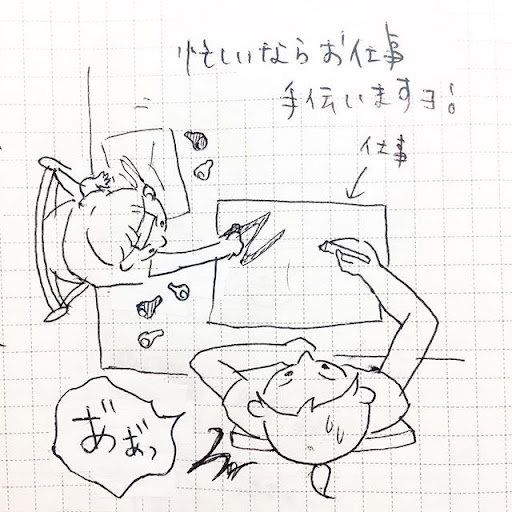 忙しいならお仕事
手伝いますヨ!
仕事
あ゛あ゛っ